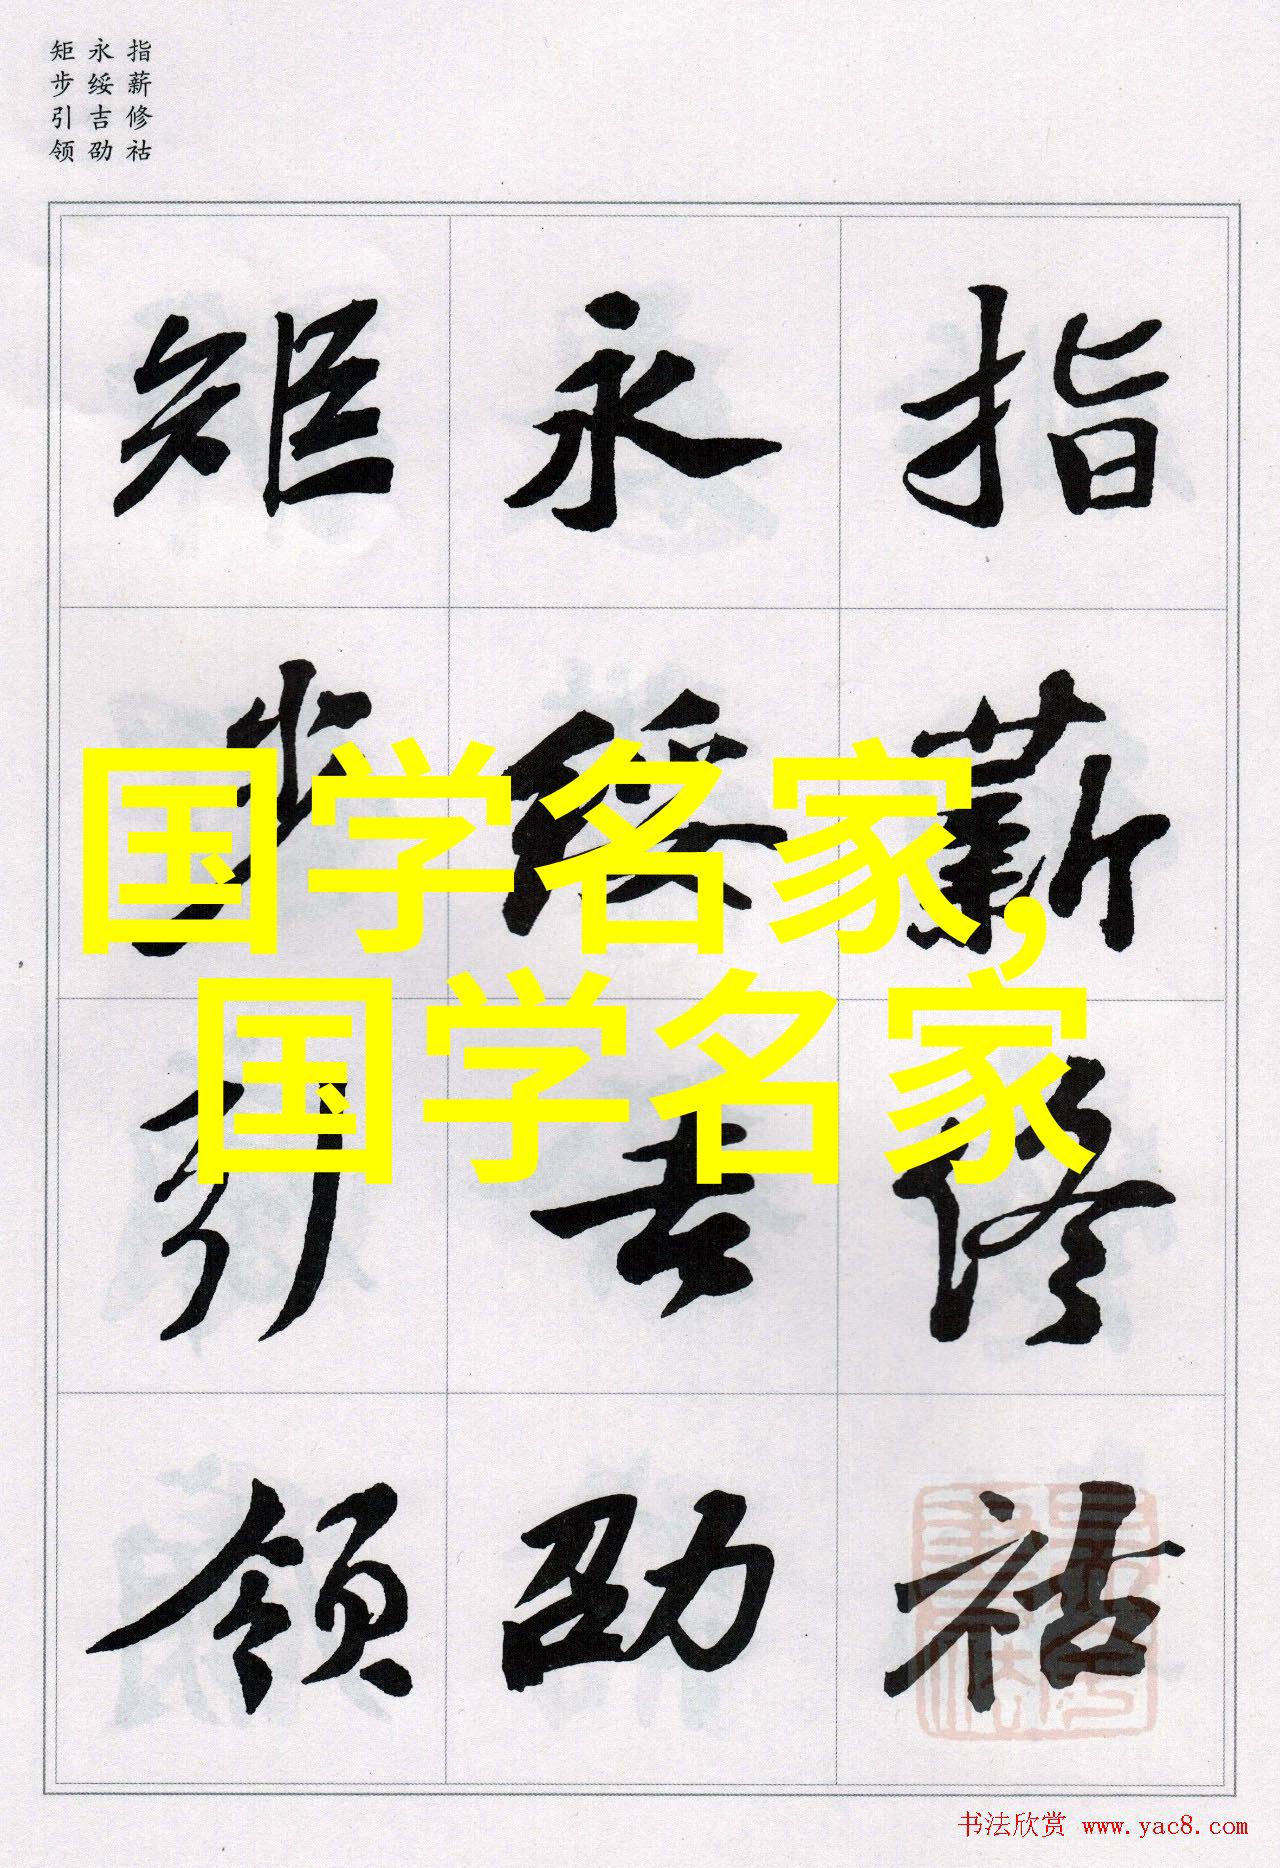 指薪修祜
永绥吉劭
矩步引领
指薪修祜
永绥吉劭
矩步引领
国学名家,
国学名家
书法欣赏 www.yac8.com